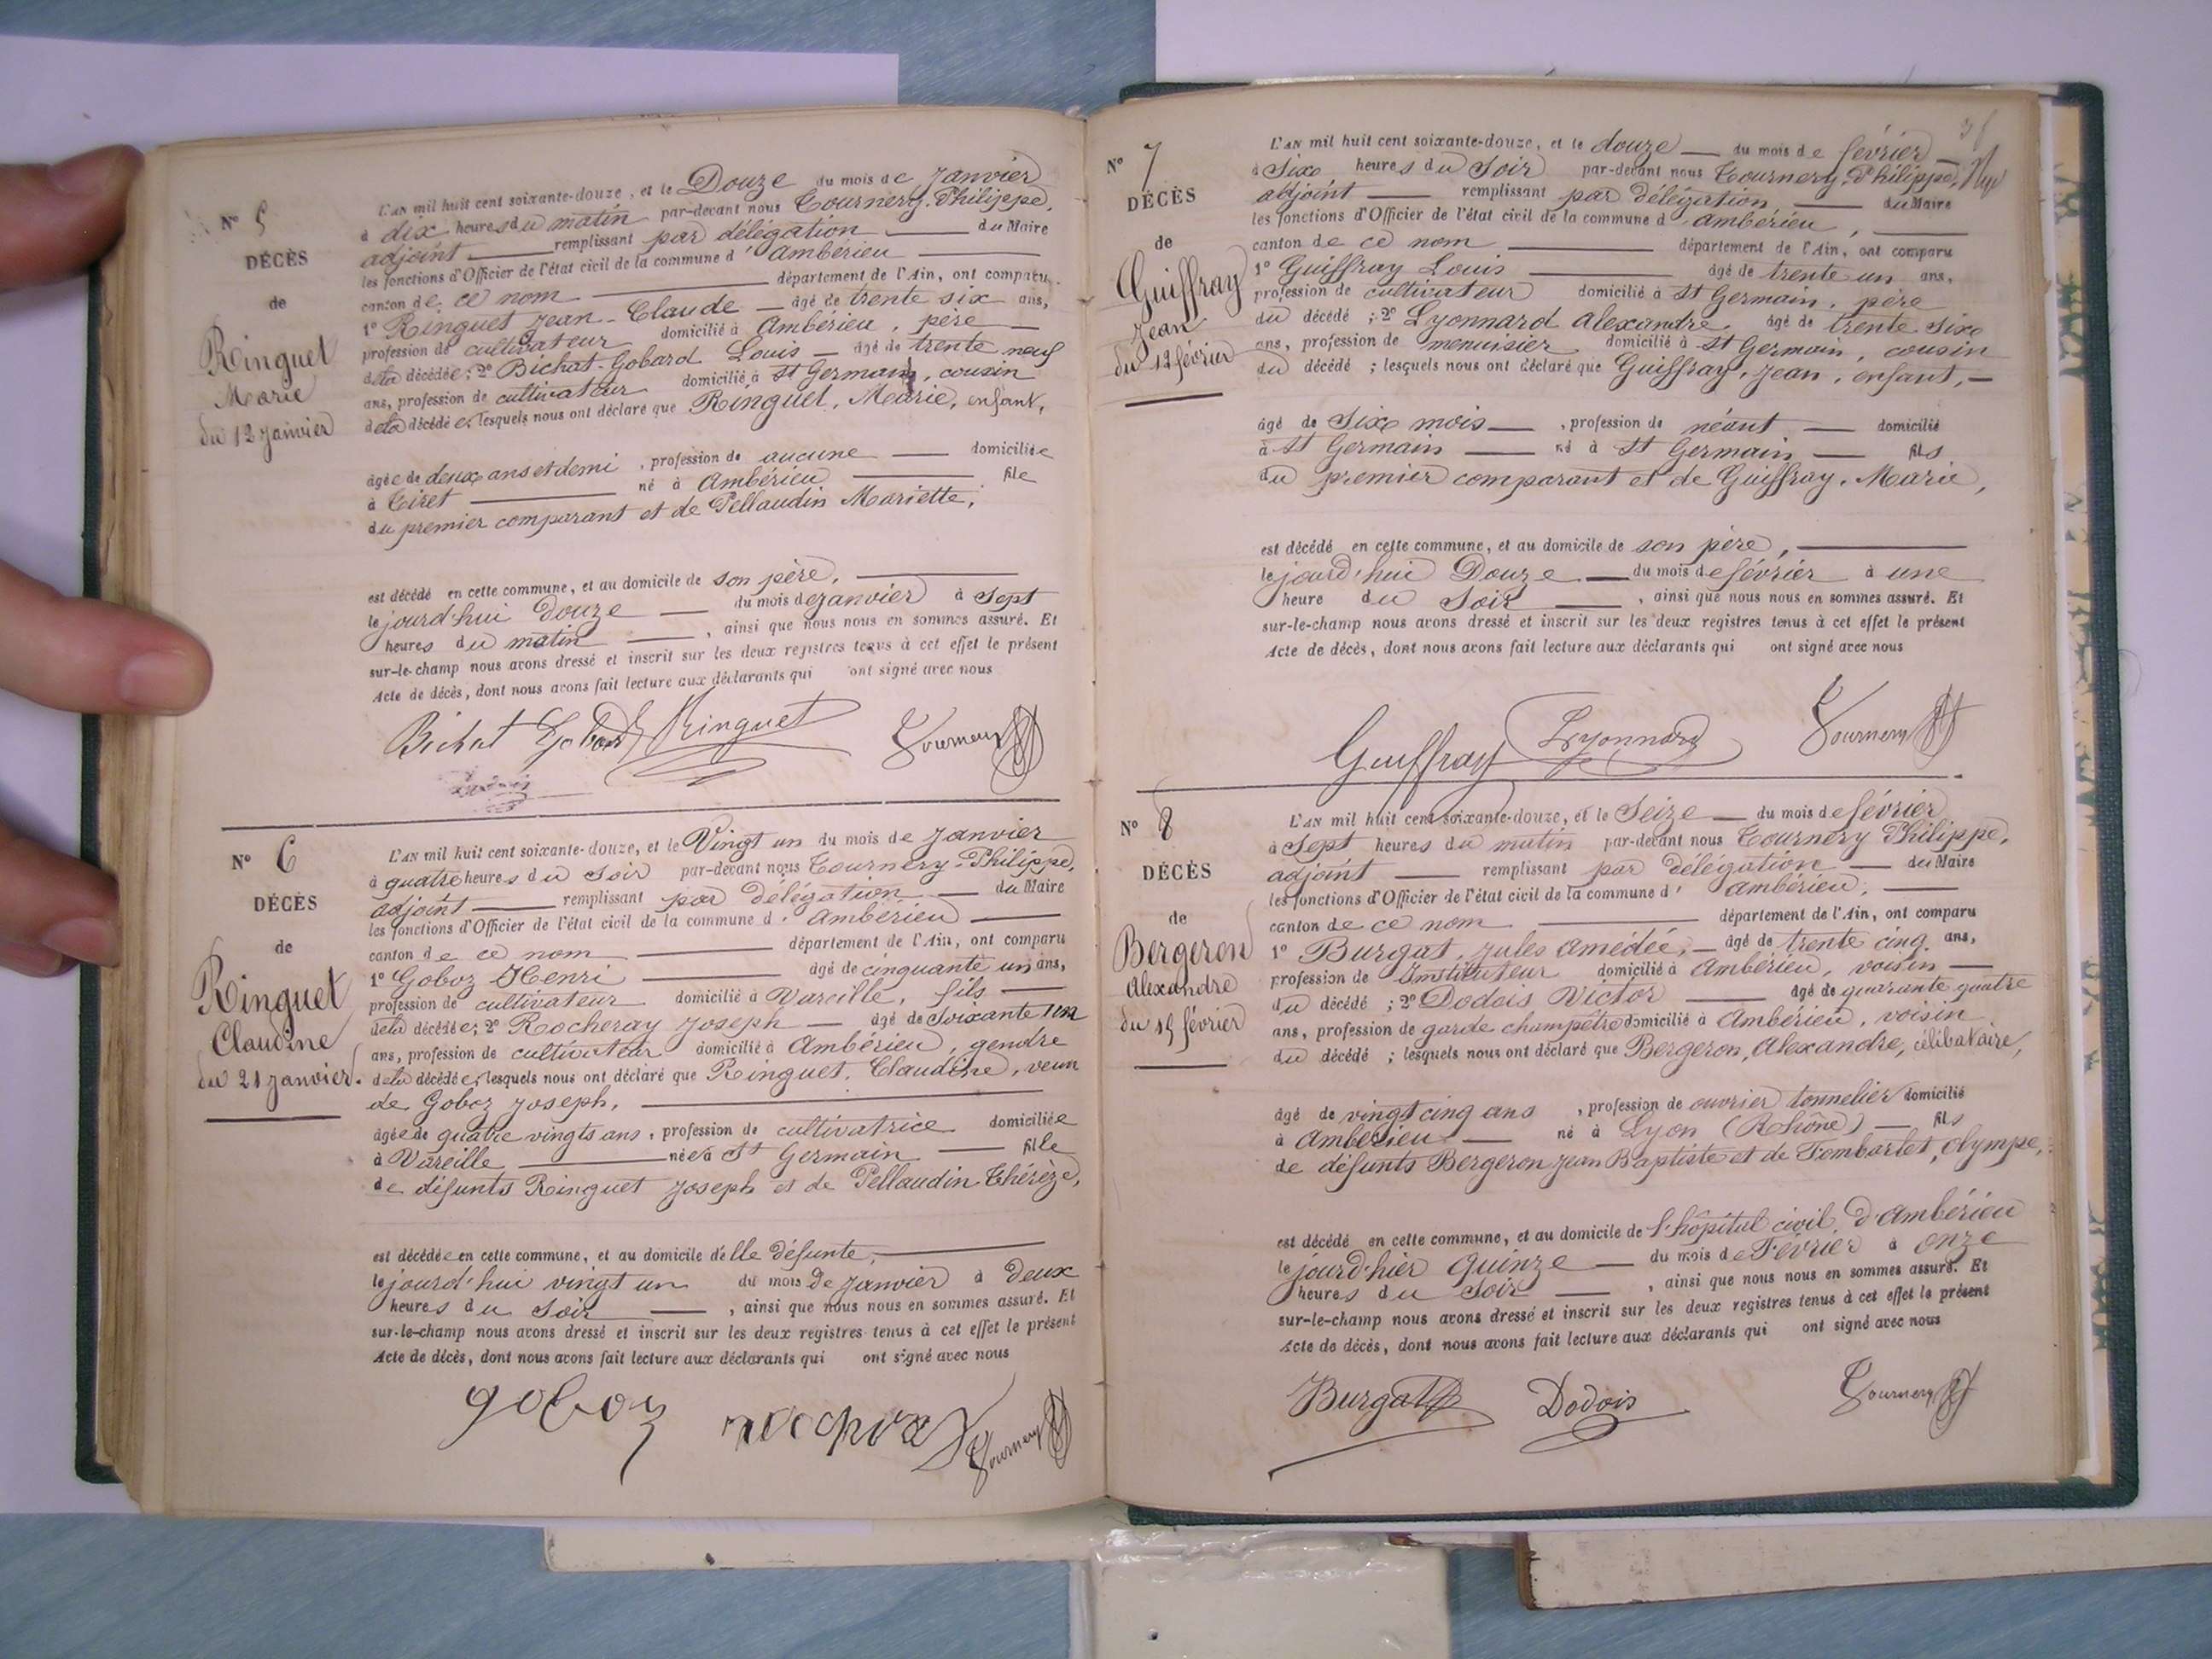 N° 5
DÉCÈS
de
Ringuet
Marie
du 12 janvier
L'AN mil huit cent soixante-douze, et le Douze du mois de Janvier
à dix heures du matin par-devant nous Tournery Philippe,
adjoint remplissant par délégation du Maire
les fonctions d'Officier de l'état civil de la commune d'Ambérieu
canton de ce nom département de l'Ain, ont comparu
1° Ringuet Jean-Claude âgé de trente six ans,
profession de cultivateur domicilié à Ambérieu, père
de la décédée; 2° Bichat-Gobard Louis âgé de trente neuf
ans, profession de cultivateur domicilié à St Germain, cousin
de la décédée, lesquels nous ont déclaré que Ringuet, Marie, enfant,
âgée de deux ans et demi, profession de aucune domiciliée
à Tiret né à Ambérieu fille
du premier comparant et de Pellaudin Mariette,
est décédé en cette commune, et au domicile de son père,
le jourd'hui Douze du mois de janvier à sept
heures du matin, ainsi que nous nous en sommes assuré. Et
sur-le-champ nous avons dressé et inscrit sur les deux registres tenus à cet effet le présent
Acte de décès, dont nous avons fait lecture aux déclarants qui ont signé avec nous
Bichat Gobard Ringuet Tournery
N° 6
DÉCÈS
de
Ringuet
Claudine
du 21 janvier.
L'AN mil huit cent soixante-douze, et le Vingt un du mois de Janvier
à quatre heures du soir par-devant nous Tournery-Philippe,
adjoint remplissant par délégation du Maire
les fonctions d'Officier de l'état civil de la commune d'Ambérieu
canton de ce nom département de l'Ain, ont comparu
1° Goboz Henri âgé de cinquante un ans,
profession de cultivateur domicilié à Vareille, fils
de la décédée; 2° Rocheray Joseph âgé de soixante un
ans, profession de cultivateur domicilié à Ambérieu, gendre
de la décédée, lesquels nous ont déclaré que Ringuet, Claudine, veuve
de Goboz Joseph,
âgée de quatre vingts ans, profession de cultivatrice domiciliée
à Vareille née à St Germain fille
de défunts Ringuet Joseph et de Pellaudin Thérèze,
est décédée en cette commune, et au domicile d'elle défunte,
le jourd'hui vingt un du mois de janvier à deux
heures du soir, ainsi que nous nous en sommes assuré. Et
sur-le-champ nous avons dressé et inscrit sur les deux registres tenus à cet effet le présent
Acte de décès, dont nous avons fait lecture aux déclarants qui ont signé avec nous
goboz Tournery
N° 7
DÉCÈS
de
Guiffray
Jean
du 12 février
L'AN mil huit cent soixante-douze, et le douze du mois de février
à Six heures du Soir par-devant nous Tournery-Philippe,
adjoint remplissant par délégation du Maire
les fonctions d'Officier de l'état civil de la commune d'ambérieu,
canton de ce nom département de l'Ain, ont comparu
1° Guiffray Louis âgé de trente un ans,
profession de cultivateur domicilié à St Germain, père
du décédé; 2° Lyonnard Alexandre âgé de trente six
ans, profession de menuisier domicilié à St Germain, cousin
du décédé; lesquels nous ont déclaré que Guiffray, Jean, enfant,
âgé de Six mois, profession de néant domicilié
à St Germain né à St Germain fils
du premier comparant et de Guiffray, Marie,
est décédé en cette commune, et au domicile de son père,
le jourd'hui Douze du mois de février à une
heure du Soir, ainsi que nous nous en sommes assuré. Et
sur-le-champ nous avons dressé et inscrit sur les deux registres tenus à cet effet le présent
Acte de décès, dont nous avons fait lecture aux déclarants qui ont signé avec nous
Guiffray Lyonnard Tournery
N° 8
DÉCÈS
de
Bergeron
Alexandre
du 15 février
L'AN mil huit cent soixante-douze, et le Seize du mois de février
à Sept heures du matin par-devant nous Tournery Philippe,
adjoint remplissant par délégation du Maire
les fonctions d'Officier de l'état civil de la commune d'ambérieu,
canton de ce nom département de l'Ain, ont comparu
1° Burgat, Jules Amédée, âgé de trente cinq ans,
profession de Instituteur domicilié à Ambérieu, voisin
du décédé; 2° Dodois Victor âgé de quarante quatre
ans, profession de garde champêtre domicilié à Ambérieu, voisin
du décédé; lesquels nous ont déclaré que Bergeron, Alexandre, célibataire,
âgé de vingt cinq ans, profession de ouvrier tonnelier domicilié
à Ambérieu né à Lyon (Rhône) fils
de défunts Bergeron Jean Baptiste et de Tombartet, Olympe,
est décédé en cette commune, et au domicile de l'hôpital civil d'Ambérieu
le jourd'hier Quinze du mois de Février à onze
heures du Soir, ainsi que nous nous en sommes assuré. Et
sur-le-champ nous avons dressé et inscrit sur les deux registres tenus à cet effet le présent
Acte de décès, dont nous avons fait lecture aux déclarants qui ont signé avec nous
Burgat Dodois Tournery